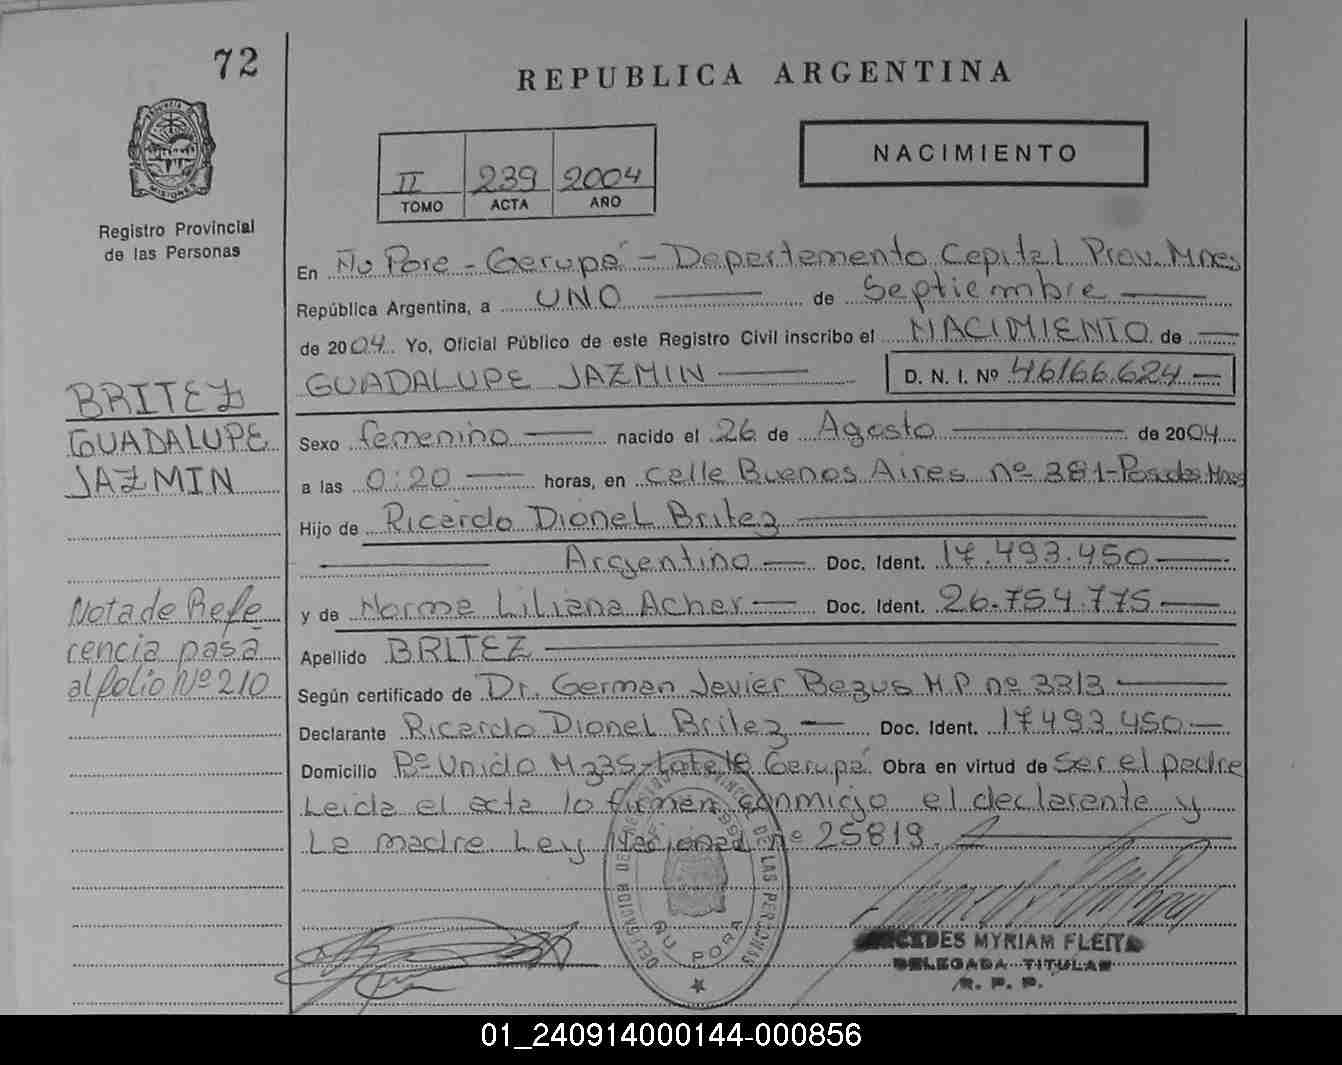 72
REPUBLICA ARGENTINA
NACIMIENTO
II 239 2004
TOMO ACTA AÑO
MISIONES
Registro Provincial
de las Personas
En Ñu Pore - Gerupá - Departamento Capital Prov. Mnes
República Argentina, a UNO de Septiembre
de 2004 Yo, Oficial Público de este Registro Civil inscribo el NACIMIENTO de
GUADALUPE JAZMIN D. N. I. Nº 46166.624
BRITEZ
GUADALUPE
JAZMIN
Sexo femenino nacido el 26 de Agosto de 2004
a las 0:20 horas, en calle Buenos Aires nº 381-Posadas Mnes
Hijo de Ricardo Dionel Britez
Argentino Doc. Ident. 17.493.450
y de Norma Liliana Acher Doc. Ident. 26.754.775
Nota de Refe
rencia pasa
al folio Nº 210
Apellido BRITEZ
Según certificado de Dr. German Javier Bezus M.P. nº 3313
Declarante Ricardo Dionel Britez Doc. Ident. 17.493.450
Domicilio Bº Unido Mz35-Lote18 Gerupá Obra en virtud de ser el padre
Leida el acta lo firman conmigo el declarante y
La madre Ley Nacional nº 25819.
DELEGACION DEL REGISTRO PROVINCIAL DE LAS PERSONAS
ÑU PORA
MYRIAM FLEITA
DELEGADA TITULAR
R. P. P.
01_240914000144-000856